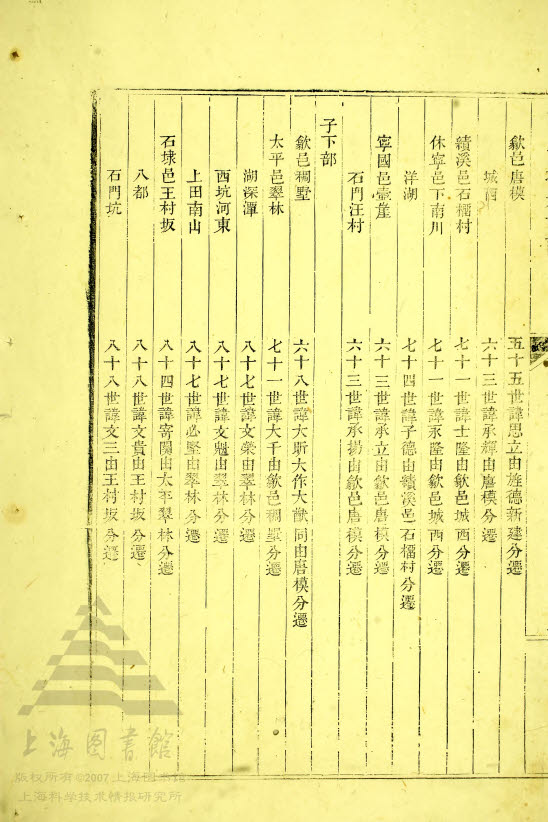 歙邑唐模　五十五世諱思立由旌德新建分遷
城西　六十三世諱承輝由唐模分遷
績溪邑石橊村　七十一世諱士隆由歙邑城西分遷
休寧邑下南川　七十一世諱永隆由歙邑城西分遷
洋湖　七十四世諱子德由績溪邑石橊村分遷
寧國邑壺崖　六十三世諱承立由歙邑唐模分遷
石門汪村　六十三世諱承揚由歙邑唐模分遷
子下部
歙邑稠墅　六十八世諱大昕大作大猷同由唐模分遷
太平邑翠林　七十一世諱大千由歙邑稠墅分遷
湖深潭　八十七世諱文榮由翠林分遷
西坑河東　八十七世諱文魁由翠林分遷
上田南山　八十七世諱必堅由翠林分遷
石埭邑王村坂　八十四世諱寄閔由太平翠林分遷
八都　八十八世諱文貴由王村坂分遷
石門坑　八十八世諱文三由王村坂分遷
上海图書館
版权所有©2007上海图书馆
上海科学技术情报研究所